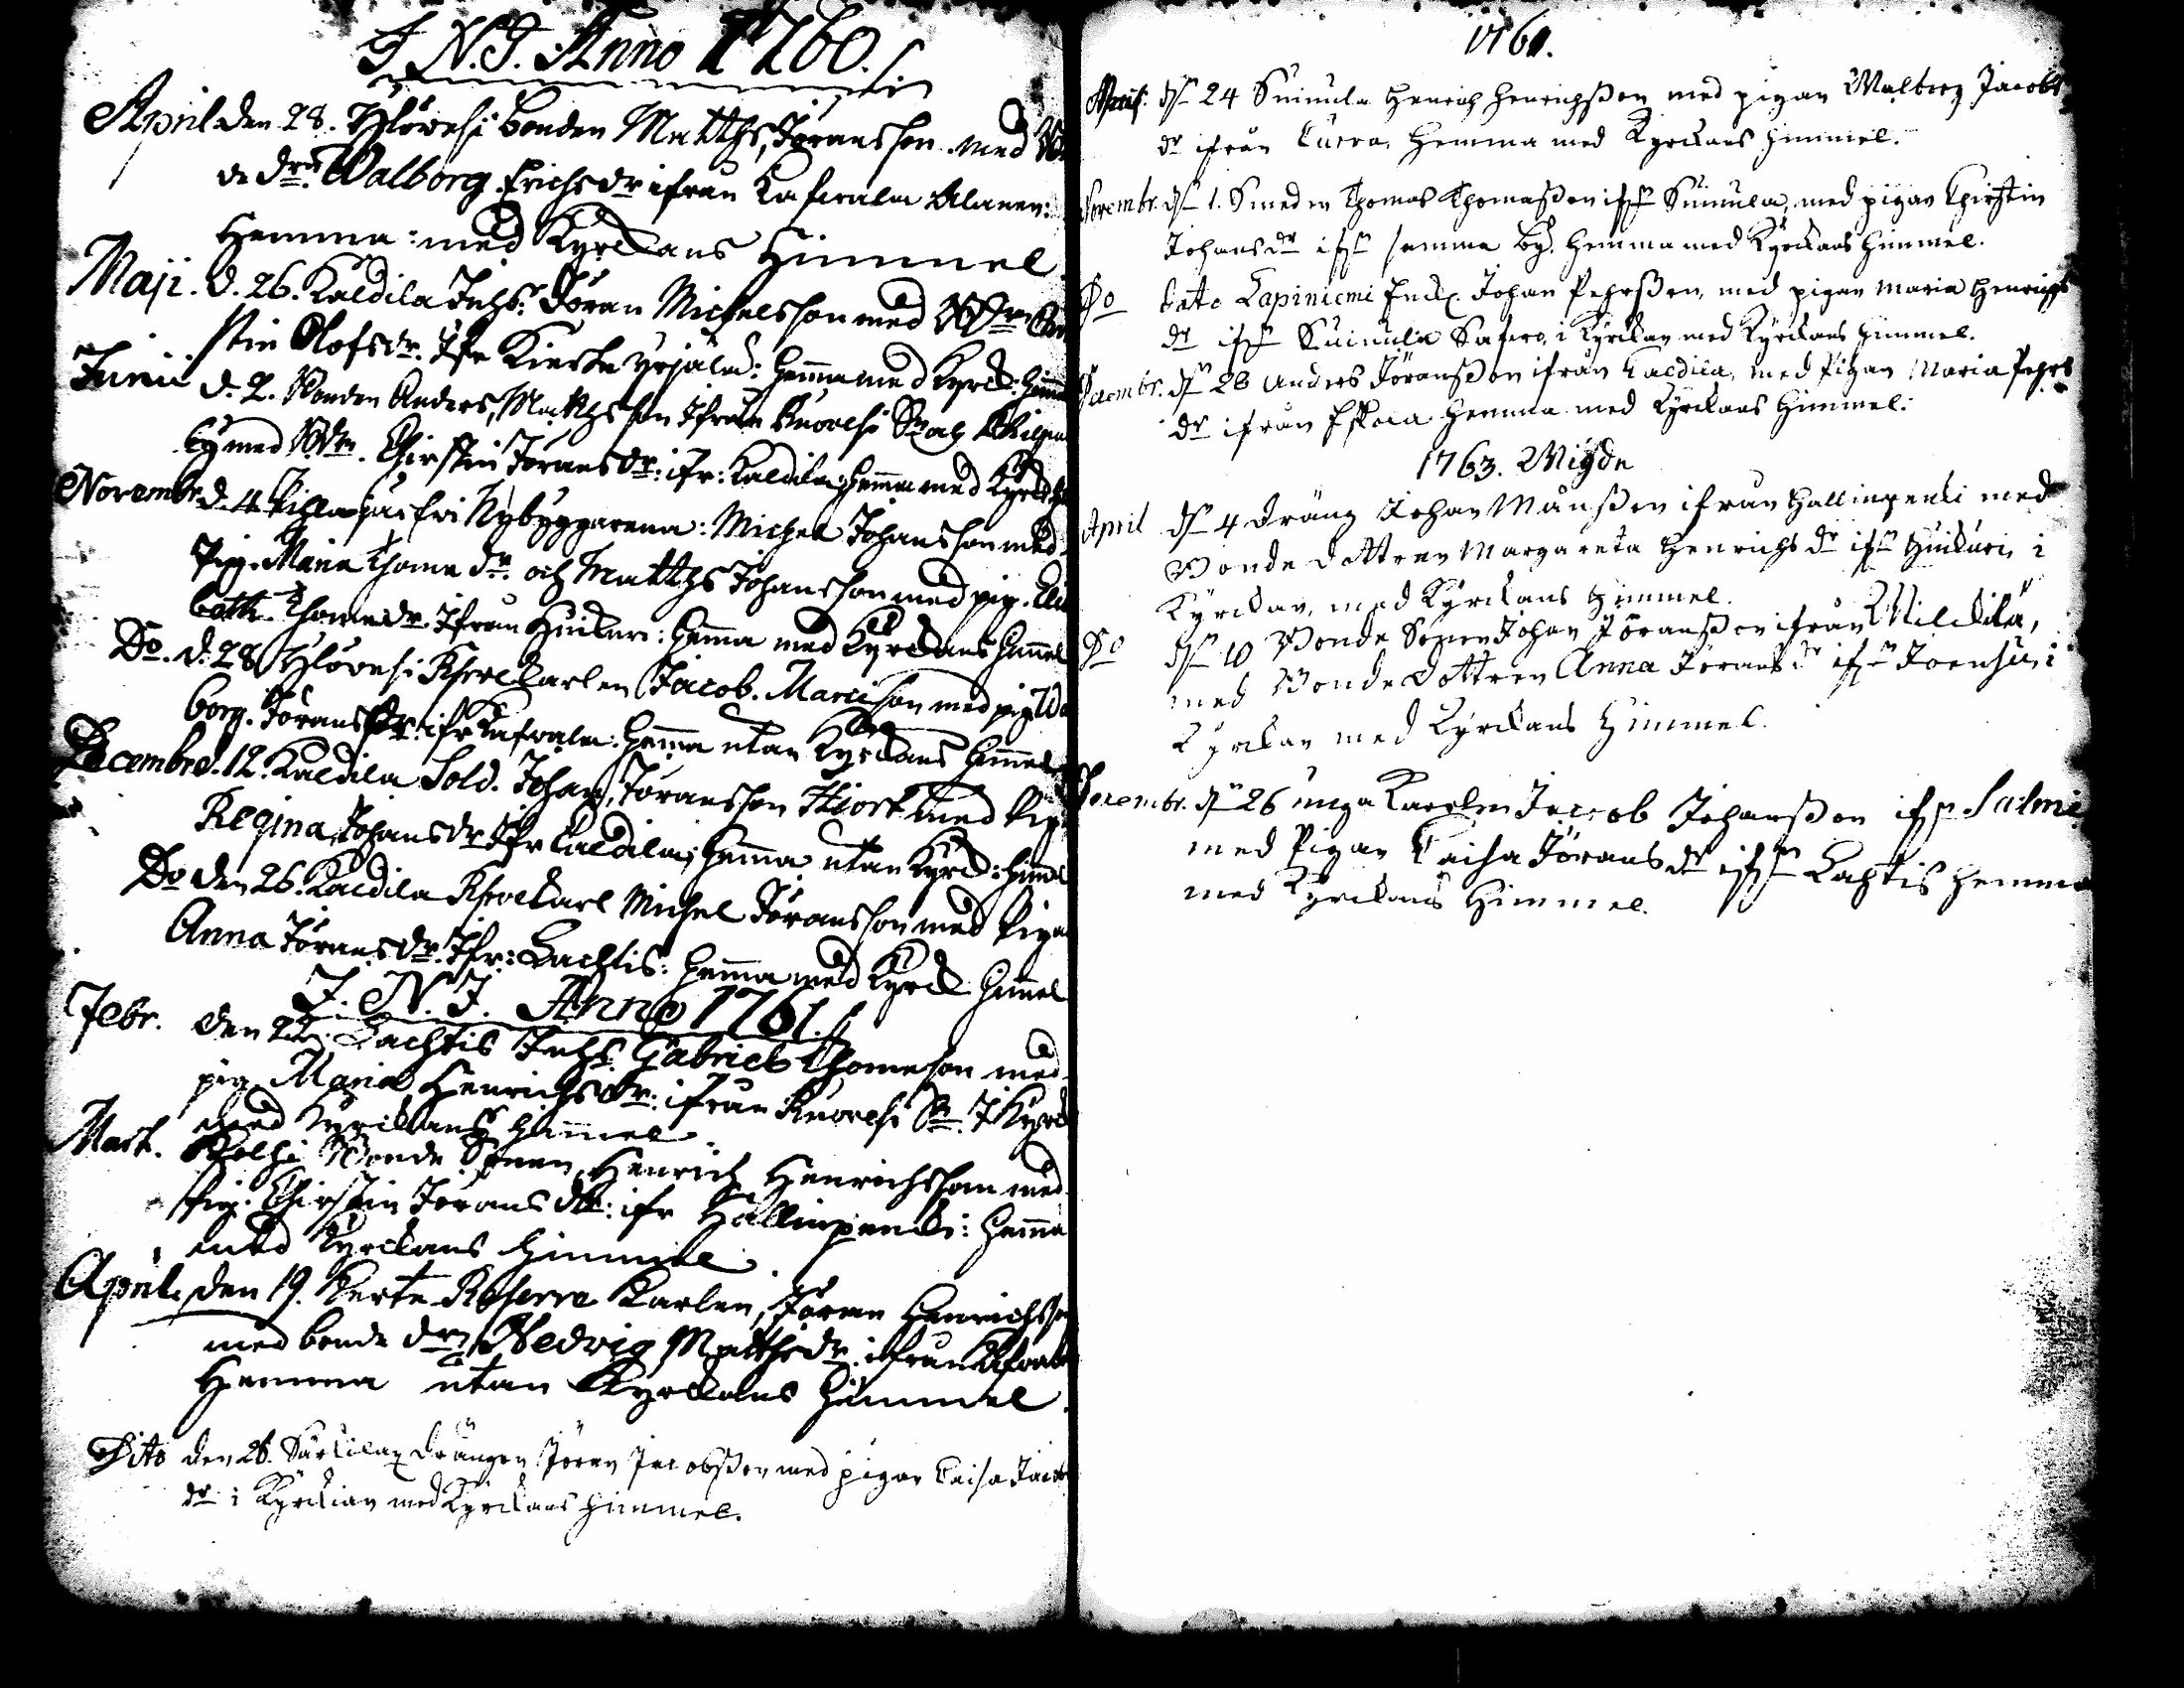 I. N. J. Anno 1760.
April den 28. Ylövesi bonden Matths Jöransson med
de dr: Walborg Erichsdr ifrån Kafvala
Hemma: med Kyrckans Himmel
Maji. d. 26. Kaldila Inhs: Jöran Michelsson med
stin Olofsdr. Ifr Hemma med Kyrck: Himmel
Junii d. 2. Bonden Anders Matthsson Ifrån Kuovesi
by med Chirstin Jöransdr: ifr: Kaldila; Hemma med Kyrck
Novembr. d. 4. Nybyggarena: Michel Johansson med
Pig. Maria Thomædr. och Matths Johansson med pig. Eli
beth Thomædr. Ifrån Huikuri: Hemma med Kyrckans Himmel
Do. d. 28 Ylövesi Reservekarlen Jacob Marcisson med pig Wal
borg Jöransdr: ifr Kafvala: Hemma utan Kyrckans Himmel
Decembr. d. 12. Kaldila Sold. Johan Jöransson Hiort med Pig
Regina Johansdr Ifr Kaldila; Hemma utan Kyrck: Himmel
Do den 26. Kaldila Reservekarl Michel Jöransson med Pigan
Anna Jöransdr. Ifr: Lachtis: Hemma med Kyrck Himmel
I. N. J. Anno 1761.
Febr. den Lachtis Inhs Gabriel Thomeson med
pig Maria Henrichsdr: ifrån Kuovesi I Kyrck
med Kyrckans Himmel
Mart. Bonde Sonen Henrich Henrichsson med
Pig: Chirstin Jöransdr: ifr Hallinpenki: Hemma
med Kyrckans Himmel
April den 19. Reserve Karlen, Jöran Henrichsson
med bonde drn Hedvig Matthsdr. ifrån Kafvala
Hemma utan Kyrckans Himmel.
Dito den 26. Särkilax drängen Jören Jacobsson med pigan Caisa Jacobs
dr i Kyrckian med Kyrckans himmel.
1761.
April: dn 24 Suinula Henrich Henrichsson med pigan Walborg Jacobs
dr ifrån Hemma med Kyrckans Himmel.
Novembr. dn 1. Smeden Thomas Thomasson ifrn Suinula, med pigan Chirstin
Johansdr ifrn samma by. Hemma med Kyrckans Himmel.
Do dato Lapiniemi Johan Pehrsson, med pigan Maria Henrichs
dr ifrn Suinula i Kyrckan med Kyrckans Himmel.
Decembr. dn 28 Anders Jöransson ifrån Kaldila, med Pigan Maria Pehrs
dr ifrån Eskola Hemma med Kyrckans Himmel.
1763. Wigde
April dn 4 dräng Johan Månsson ifrån Hallinpenki med
Bonde dottren Margareta Henrichsdr ifrn Huikuri, i
Kyrckan, med Kyrckans Himmel.
Do dn 10 Bonde Sonen Johan Jöransson ifrån
med Bonde dottren Anna Jöransdr ifrn Joensu, i
Kyrckan med Kyrckans Himmel.
Novembr. dn 26 unga Karlen Jacob Johansson ifrn Salmi
med Pigan Caisa Jöransdr ifrn Lachtis hemma
med Kyrckans Himmel.